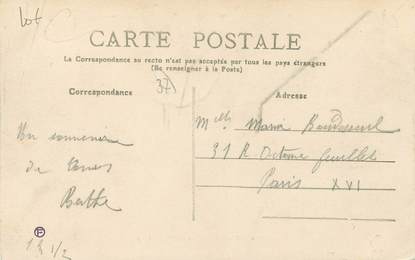 Lot
CARTE POSTALE
La Correspondance au recto n'est pas acceptée par tous les pays étrangers
(Se renseigner à la Poste)
Correspondance
37
Adresse
Melle Maria
Un souvenir
31 R Octave feuillet
de
Paris XVI
Berthe
P
1/2